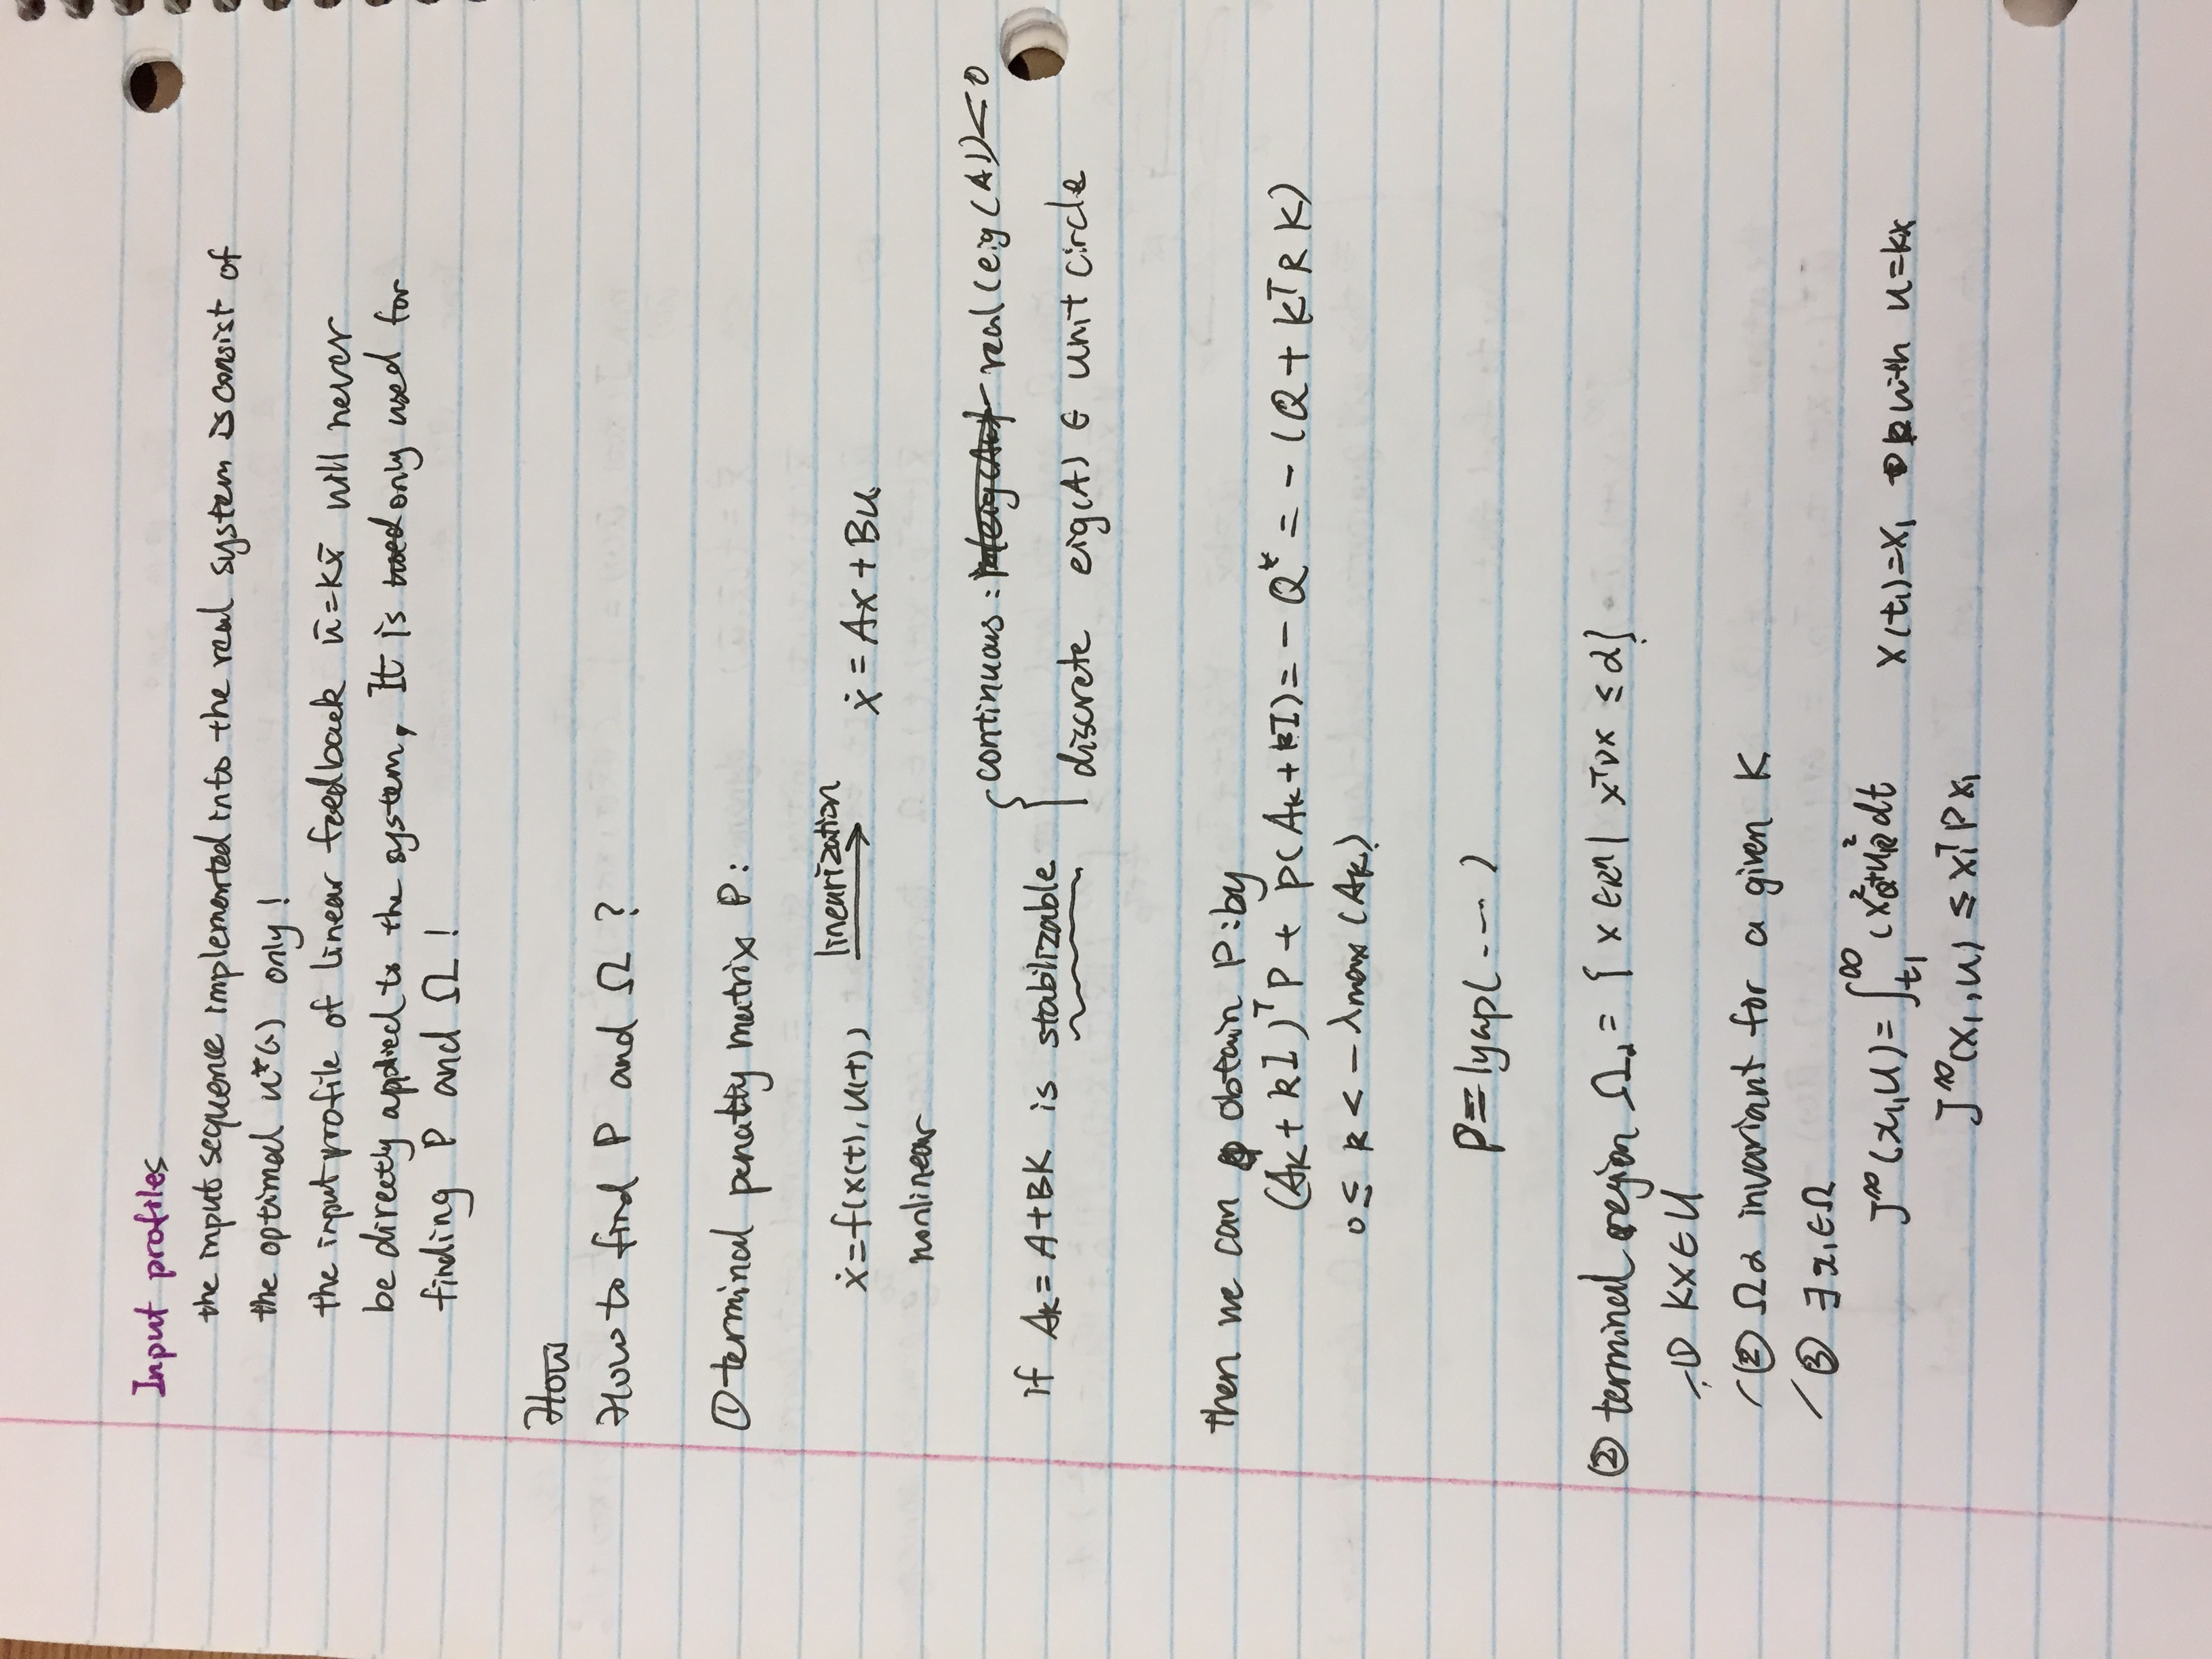 Input profiles
the input sequence implemented into the real system is consist of
the optimal u*(·) only!
the input profile of linear feedback ū=Kx̄ will never
be directly applied to the system, It is used only used for
finding P and Ω!
How
How to find P and Ω ?
① terminal penalty matrix P:
ẋ=f(x(t), u(t)) linearization ẋ = Ax + Bu
nonlinear
continuous : real(eig(A))<0
if Ak = A+BK is stablizable
discrete eig(A) ∈ unit circle
then we can obtain P: by
(Ak + kI)ᵀP + P(Ak + kI) = - Q* = - (Q + KᵀRK)
0 ≤ k < - λmax (Ak)
P = lyap( ---- )
② terminal region Ωα = { x ∈ Rⁿ | xᵀPx ≤ α}
① Kx ∈ U
② Ωα invariant for a given K
③ ∃ x₁ ∈ Ω
J^∞(x₁,u) = ∫_{t₁}^∞ (x²_Q + u²_R) dt x(t₁)=x₁ with u=kx
J^∞(x₁,u) ≤ x₁ᵀPx₁